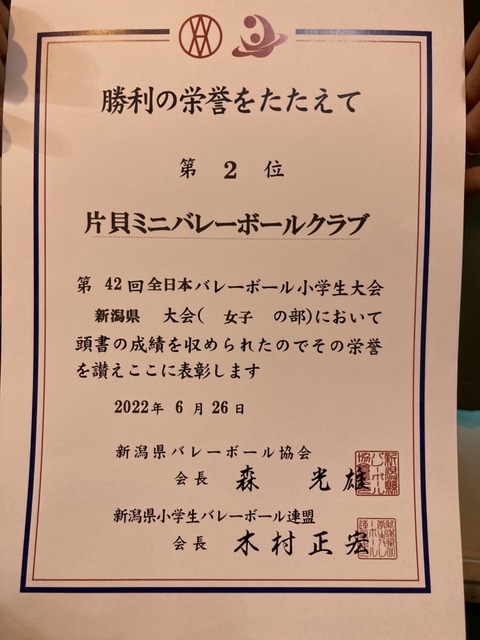 勝利の栄誉をたたえて
第 2 位
片貝ミニバレーボールクラブ
第 42 回全日本バレーボール小学生大会
新潟県 大会( 女子 の部)において
頭書の成績を収められたのでその栄誉
を讃えここに表彰します
2022年 6 月 26日
新潟県バレーボール協会
会長 森 光雄
新潟県小学生バレーボール連盟
会長 木村正宏